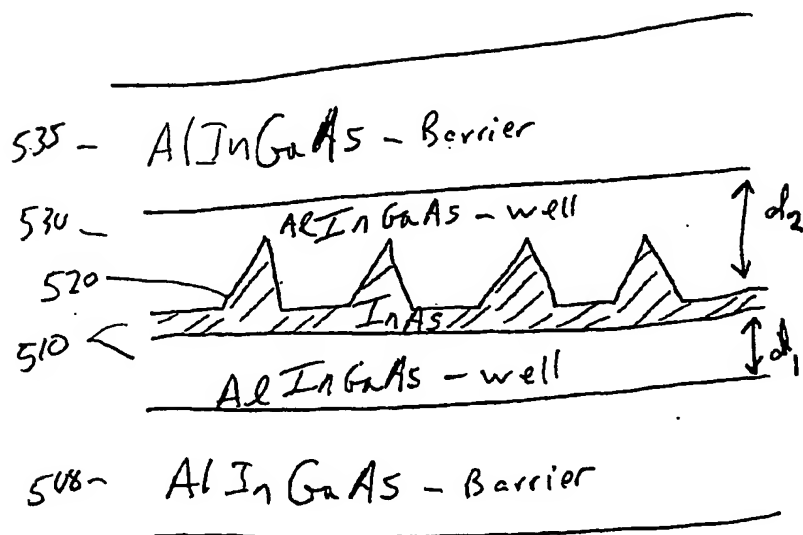 535 - AlInGaAs - Barrier
530 - AlInGaAs - well
d2
520
InAs
510
d1
AlInGaAs - well
508 - AlInGaAs - Barrier